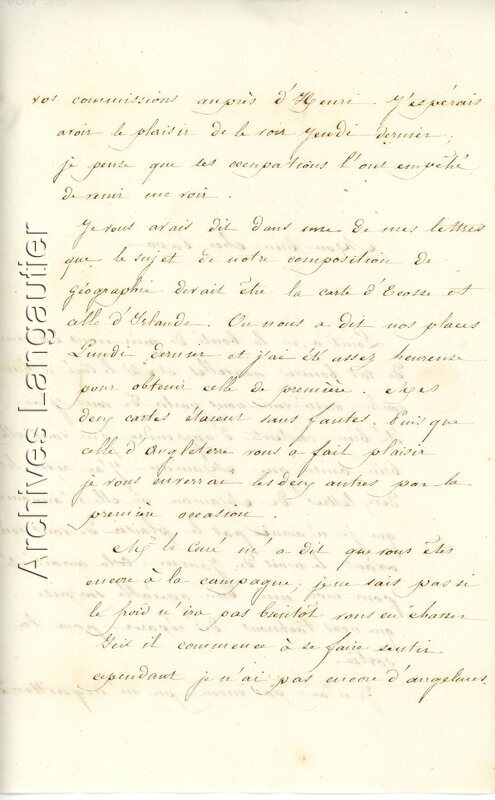 vos commissions auprès d'Henri J'espérais
avoir le plaisir de le voir Jeudi dernier,
je pense que ses occupations l'ont empêché
de venir me voir.
Je vous avais dit dans une de mes lettres
que le sujet de notre composition de
géographie devait être la carte d'Ecosse et
celle d'Irlande. On nous a dit nos places
Lundi dernier et j'ai été assez heureuse
pour obtenir celle de première. Mes
deux cartes étaient sans fautes. Puis que
celle d'Angleterre vous a fait plaisir
je vous enverrai les deux autres par la
première occasion.
Mr le Curé m'a dit que vous êtes
encore à la campagne, je ne sais pas si
le froid n'ira pas bientôt vous en chasser
Ici il commence à se faire sentir
cependant je n'ai pas encore d'angelures.
Archives Langautier